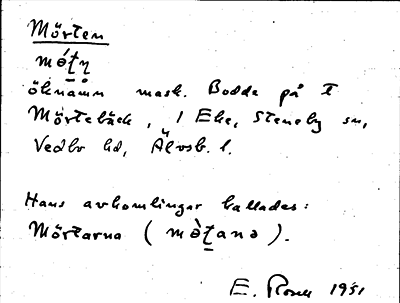 Mörten
öknamn mask. Bodde på T
Mörtebäck, i Eke, Steneby sn,
Vedbo hd, Älvsb. l.
Hans avkomlingar kallades:
Mörtarna (mö̀tana).
E. Rosell 1951